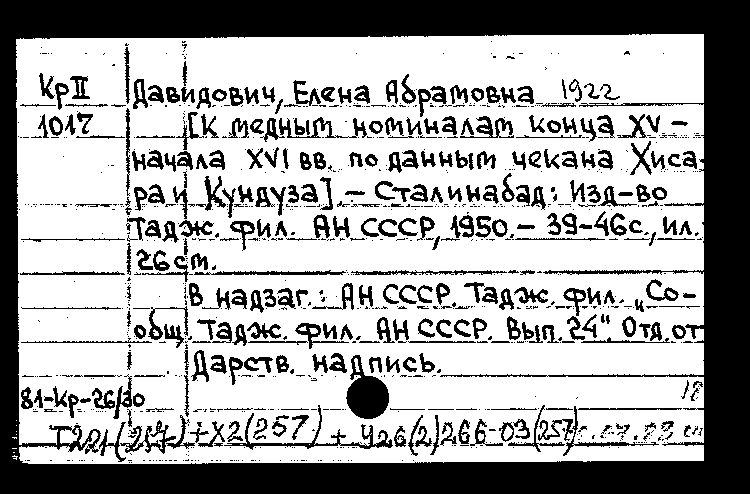 Кр II Давидович, Елена Абрамовна 1922
1017 [К медным номиналам конца XV –
начала XVI вв. по данным чекана Хиса-
ра и Кундуза]. – Сталинабад: Изд-во
Тадж. фил. АН СССР, 1950. – 39-46с., ил.
26 см.
В надзаг.: АН СССР. Тадж. фил. „Со-
общ. Тадж. фил. АН СССР. Вып. 24“. Отд. от
Дарств. надпись.
81-Кр-26/30 18
Т221(257) + Х2(257) + Ч26(2)266-03(257)